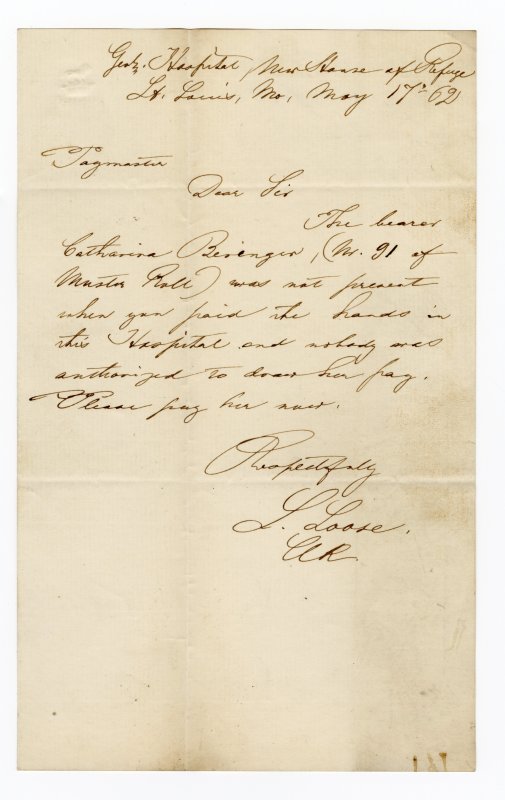 Genl. Hospital New House of Refuge
St. Louis, Mo, May 17th 62
Paymaster
Dear Sir
The bearer
Catharina Berenger, (Nr. 91 of
Muster Roll) was not present
when you paid the hands in
this Hospital and nobody was
authorized to draw her pay.
Please pay her now.
Respectfully
L. Loose.